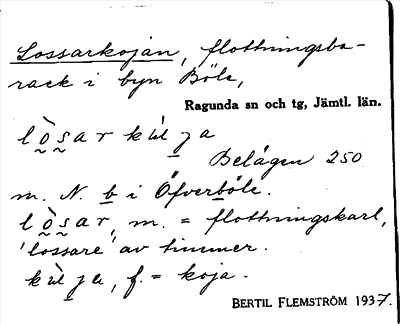 Lossarkojan, flottningsba-
rack i byn Böle,
Ragunda sn och tg, Jämtl. län.
lò̰s̰ar kùl̠ja
Belägen 250
m. N. b i Öfverböle.
lò̰s̰ar, m. = flottningskarl,
'lossare' av timmer.
f. = koja.
BERTIL FLEMSTRÖM 1937.